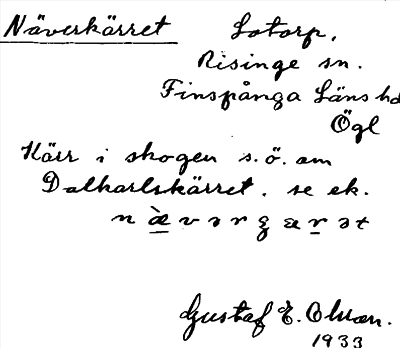 Näverkärret Lotorp,
Risinge sn.
Finspånga Läns hd
Ögl
Kärr i skogen s.ö. om
Dalkarlskärret. se ek.
Gustaf E. Olsson.
1933